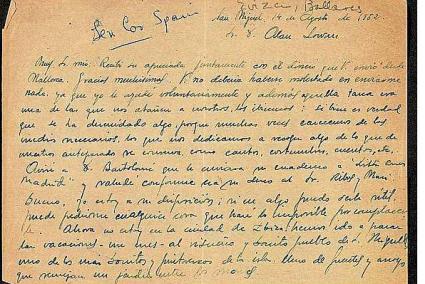 Ibiza, Baleares
Sen Cor Spain
San Miguel, 14 de Agosto de 1952
Sr. D. Alan Lomax
Muy Sr. mío: Recibí su apreciada juntamente con el disco que envió desde
Mallorca. Gracias muchísimas. No debería haberse molestado en enviarme
nada, ya que yo le ayudé voluntariamente y además aquella tarea era
una de las que nos atañen a nosotros, los : si bien es verdad
que se ha algo, porque muchas veces carecemos de los
medios necesarios, los que nos dedicamos a recoger algo de lo que de
nuestros antepasados se conserva, como cantos, costumbres, cuentos, etc.
a D. Bartolomé que le enviara mi cuaderno a
Madrid" y conforme sea, su deseo al Sr. Ribas y Marí
Bueno, yo estoy a su disposición; si en algo puedo serle útil,
puede pedirme cualquier cosa que haré lo imposible por complacerle.
Ahora no estoy en la ciudad de Ibiza: hemos ido a pasar
las vacaciones - un mes - al y bonito pueblo de S. Miguel,
uno de los más bonitos y pintorescos de la isla. lleno de fuentes y arroyos
que un jardín entre los